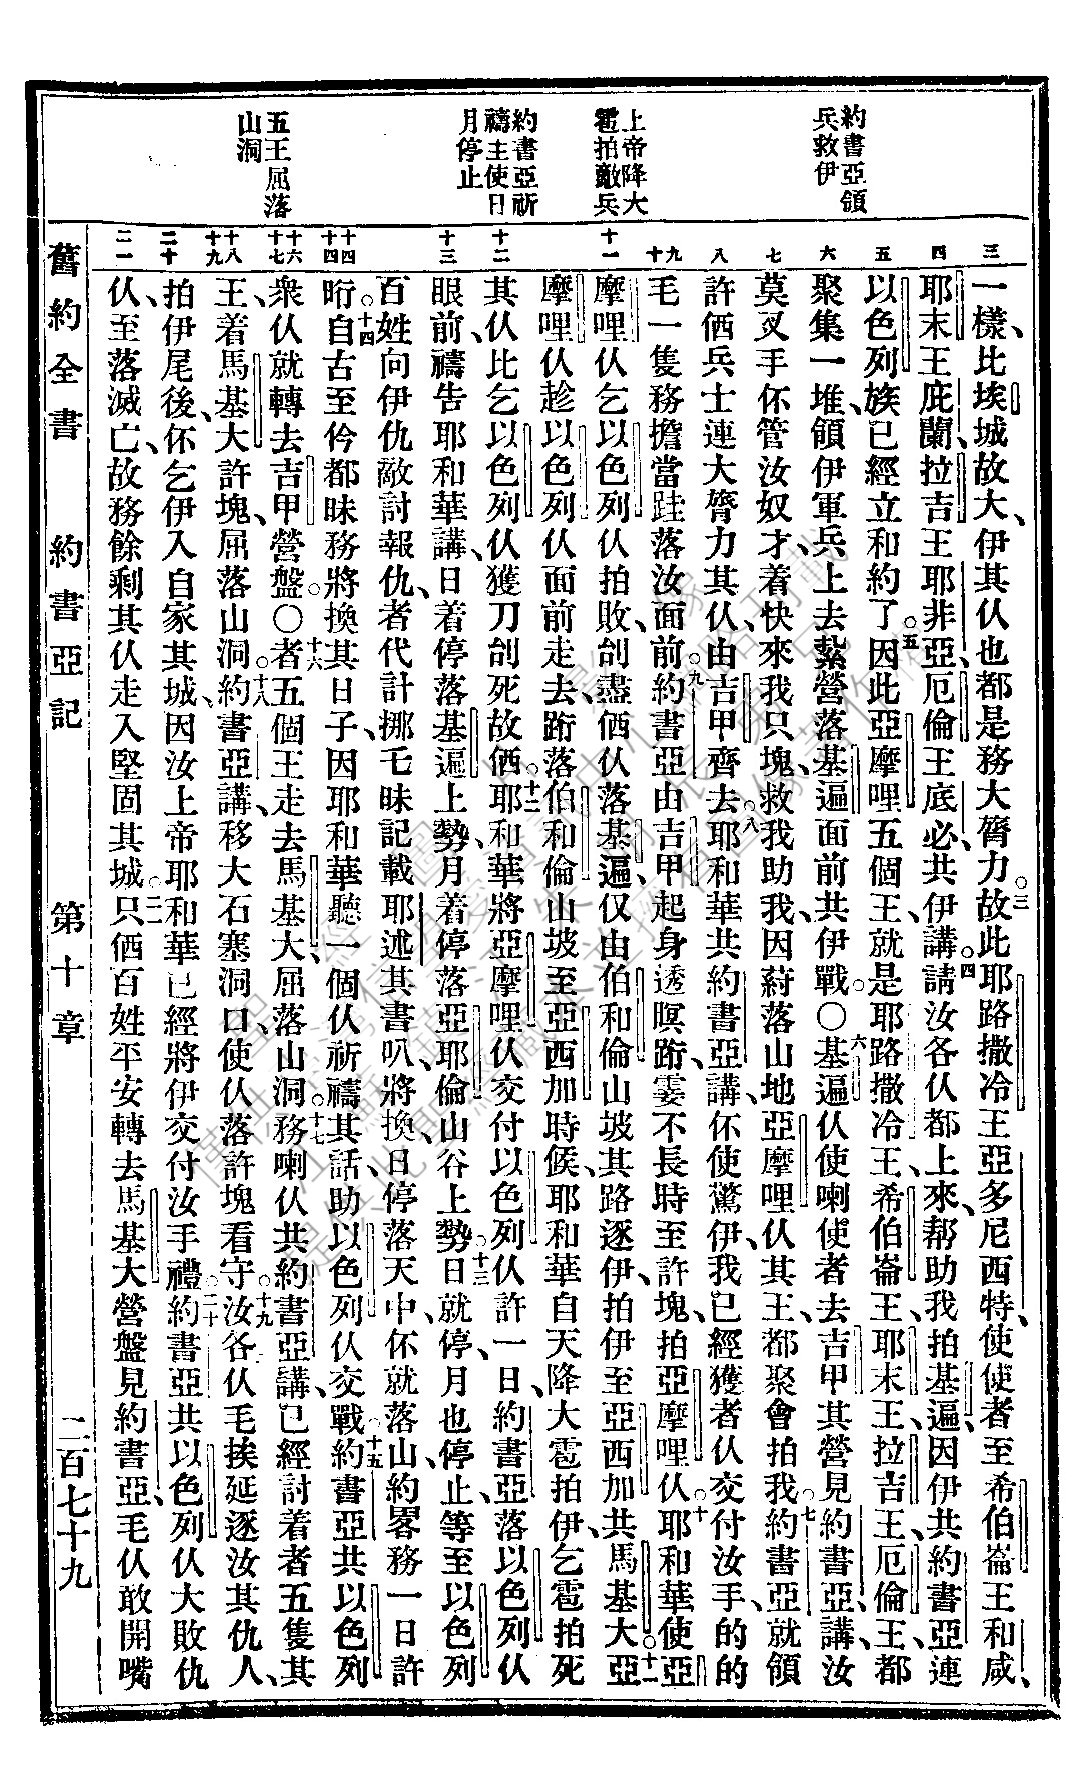 約書亞領
兵救伊
上帝降大
雹拍敵兵
約書亞祈
禱主使日
月停止
五王屈落
山洞
三
四
五
六
七
八
九
十
十一
十二
十三
十四
十四
十六
十七
十八
十九
二十
二一
一樣、比埃城故大、伊其仈也都是務大膂力。三故此耶路撒冷王亞多尼西特、使使者至希伯崙王和咸、
耶末王庇蘭、拉吉王耶非亞、厄倫王底必、共伊講、四請汝各仈都上來、帮助我拍基遍、因伊共約書亞連
以色列族已經立和約了。五因此亞摩哩五個王、就是耶路撒冷王、希伯崙王、耶末王、拉吉王、厄倫王、都
聚集一堆、領伊軍兵上去紮營落基遍面前共伊戰。〇六基遍仈使喇使者去吉甲其營見約書亞、講、汝
莫叉手伓管汝奴才、着快來我只塊、救我助我、因蒔落山地亞摩哩仈其王、都聚會拍我。七約書亞就領
許俩兵士連大膂力其仈、由吉甲齊去。八耶和華共約書亞講、伓使驚伊、我已經獲者仈交付汝手、的的
毛一隻務擔當跬落汝面前。九約書亞由吉甲起身透暝跡、霎不長時至許塊、拍亞摩哩仈。十耶和華使亞
摩哩仈乞以色列仈拍敗、刣盡俩仈落基遍、仅由伯和倫山坡其路逐伊、拍伊至亞西加共馬基大。十一亞
摩哩仈趁以色列仈面前走去、跡落伯和倫山坡至亞西加時候、耶和華自天降大雹拍伊、乞雹拍死
其仈比乞以色列仈獲刀刣死故俩。十二耶和華將亞摩哩仈交付以色列仈許一日、約書亞落以色列仈
眼前、禱告耶和華講、日着停落基遍上勢、月着停落亞耶倫山谷上勢。十三日就停、月也停止、等至以色列
百姓向伊仇敵討報仇、者代計挪乇昧記載耶述其書叭、將換、日停落天中、伓就落山、約畧務一日許
昈。十四自古至仱都昧務將換其日子、因耶和華聽一個仈祈禱其話、助以色列仈交戰。十五約書亞共以色列
衆仈就轉去吉甲營盤。〇十六者五個王走去馬基大、屈落山洞。十七務喇仈共約書亞講、已經討着者五隻其
王、着馬基大許塊、屈落山洞。十八約書亞講、移大石塞洞口、使仈落許塊看守。十九汝各仈毛挨延逐汝其仇人、
拍伊尾後、伓乞伊入自家其城、因汝上帝耶和華已經將伊交付汝手禮。二十約書亞共以色列仈大敗仇
仈、至落滅亡、故務餘剩其仈走入堅固其城。二一只俩百姓平安轉去馬基大營盤見約書亞、毛仈敢開嘴
舊約全書 約書亞記 第十章 二百七十九